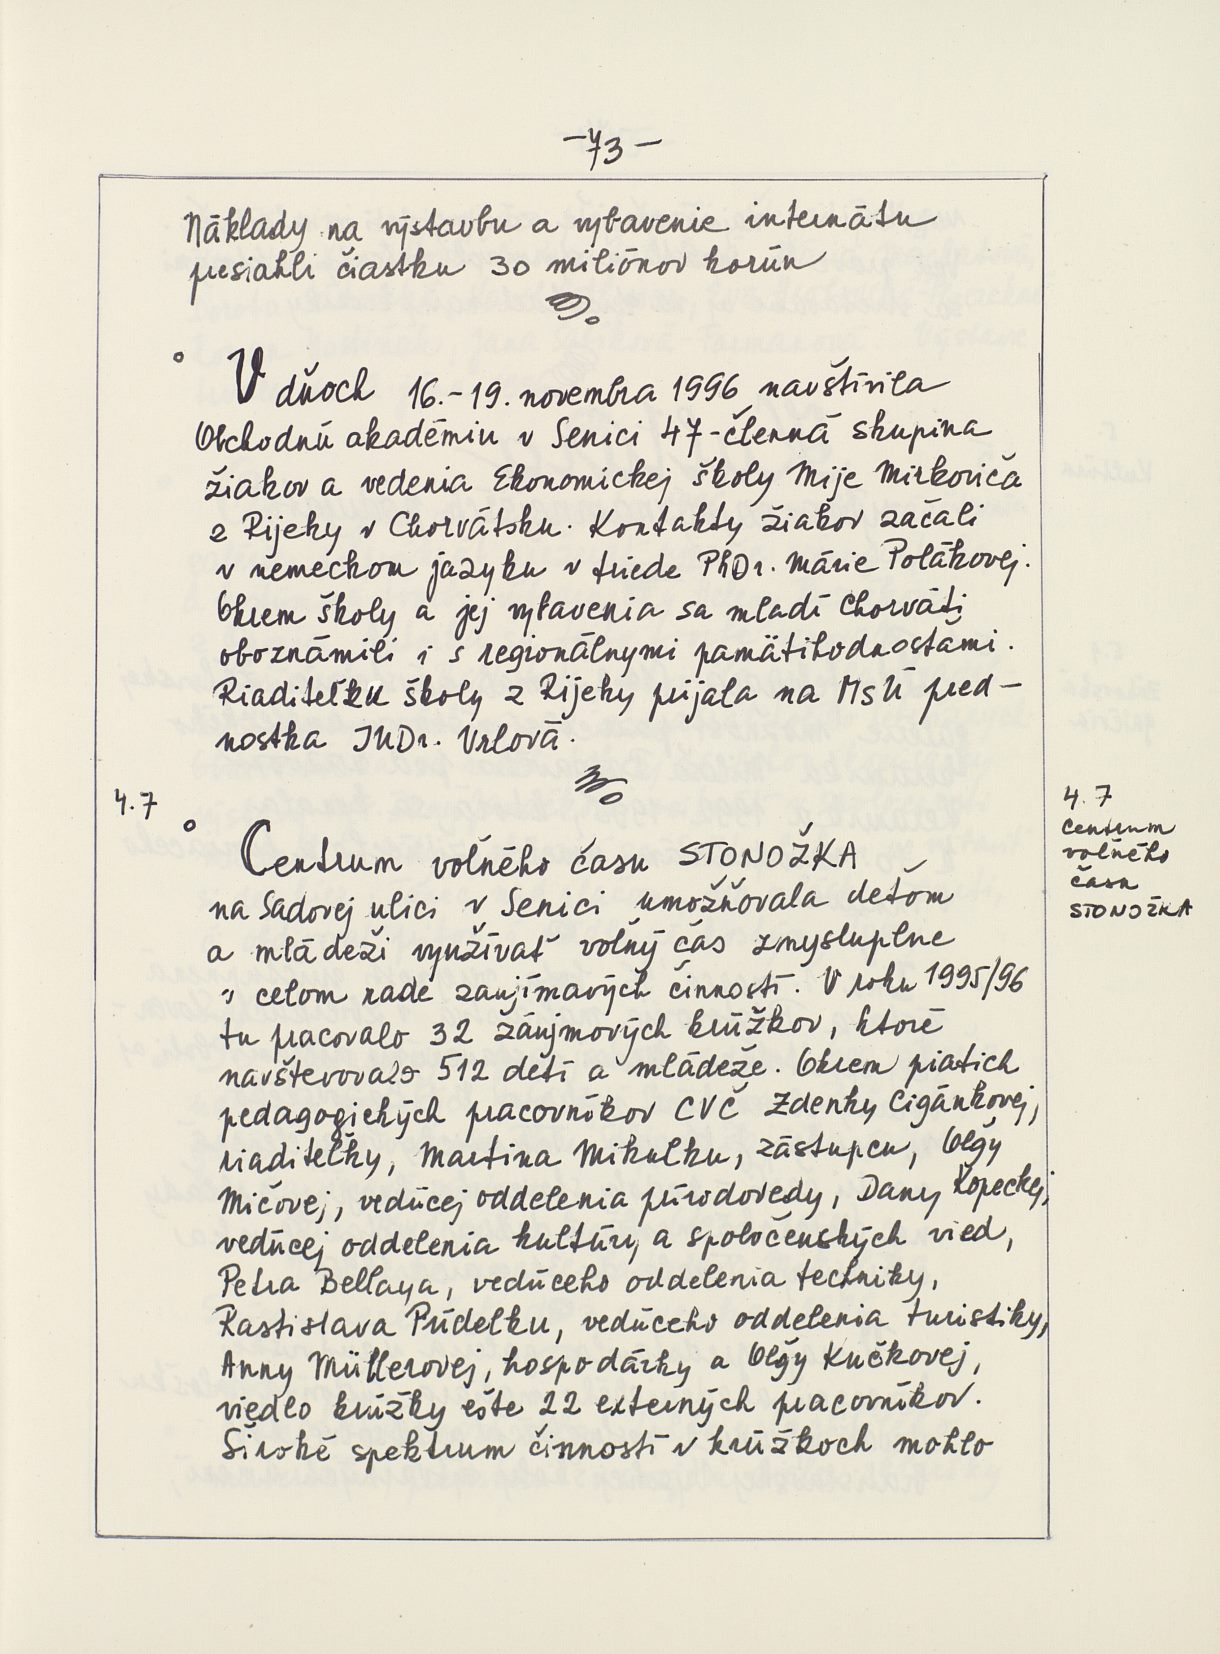 -73-
Náklady na výstavbu a vybavenie internátu
presiahli čiastku 30 miliónov korún
V dňoch 16.-19. novembra 1996 navštívila
Obchodnú akadémiu v Senici 47-členná skupina
žiakov a vedenia Ekonomickej školy Mije Mirkoviča
z Rijeky v Chorvátsku. Kontakty žiakov začali
v nemeckom jazyku v triede PhDr. Márie Polákovej.
Okrem školy a jej vybavenia sa mladí Chorváti
oboznámili i s regionálnymi pamätihodnosťami.
Riaditeľku školy z Rijeky prijala na MsÚ pred-
nostka JUDr. Vrlová.
4.7
Centrum voľného času STONOŽKA
na Sadovej ulici v Senici umožňovala deťom
a mládeži využívať voľný čas zmysluplne
v celom rade zaujímavých činností. V roku 1995/96
tu pracovalo 32 záujmových krúžkov, ktoré
navštevovalo 512 detí a mládeže. Okrem piatich
pedagogických pracovníkov CVČ Zdenky Cigánkovej,
riaditeľky, Martina Mikulku, zástupcu, Oľgy
Mičovej, vedúcej oddelenia prírodovedy, Dany Kopeckej,
vedúcej oddelenia kultúry a spoločenských vied,
Petra Bellaya, vedúceho oddelenia techniky,
Rastislava Púdelku, vedúceho oddelenia turistiky,
Anny Müllerovej, hospodárky a Oľgy Kučkovej,
viedlo krúžky ešte 22 externých pracovníkov.
Široké spektrum činností v krúžkoch mohlo
4.7
Centrum
voľného
času
STONOŽKA